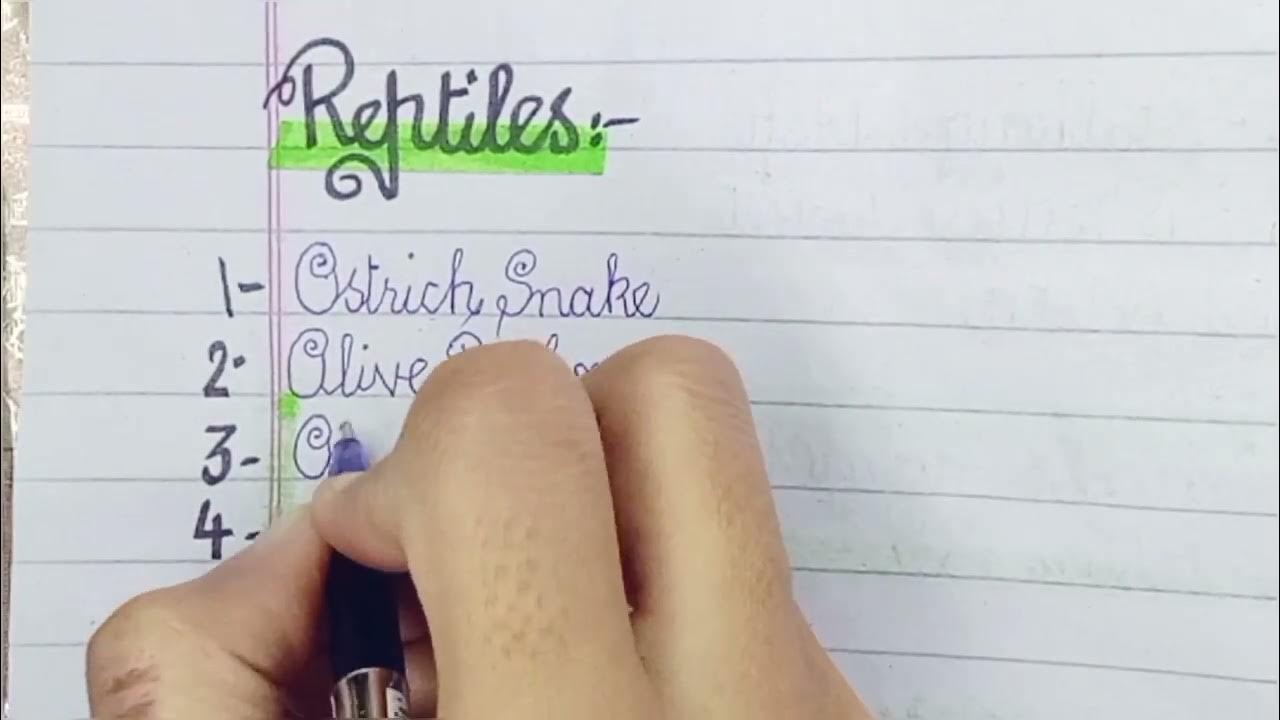 Reptiles:-
1- Ostrich Snake
2- Olive
3- O
4-